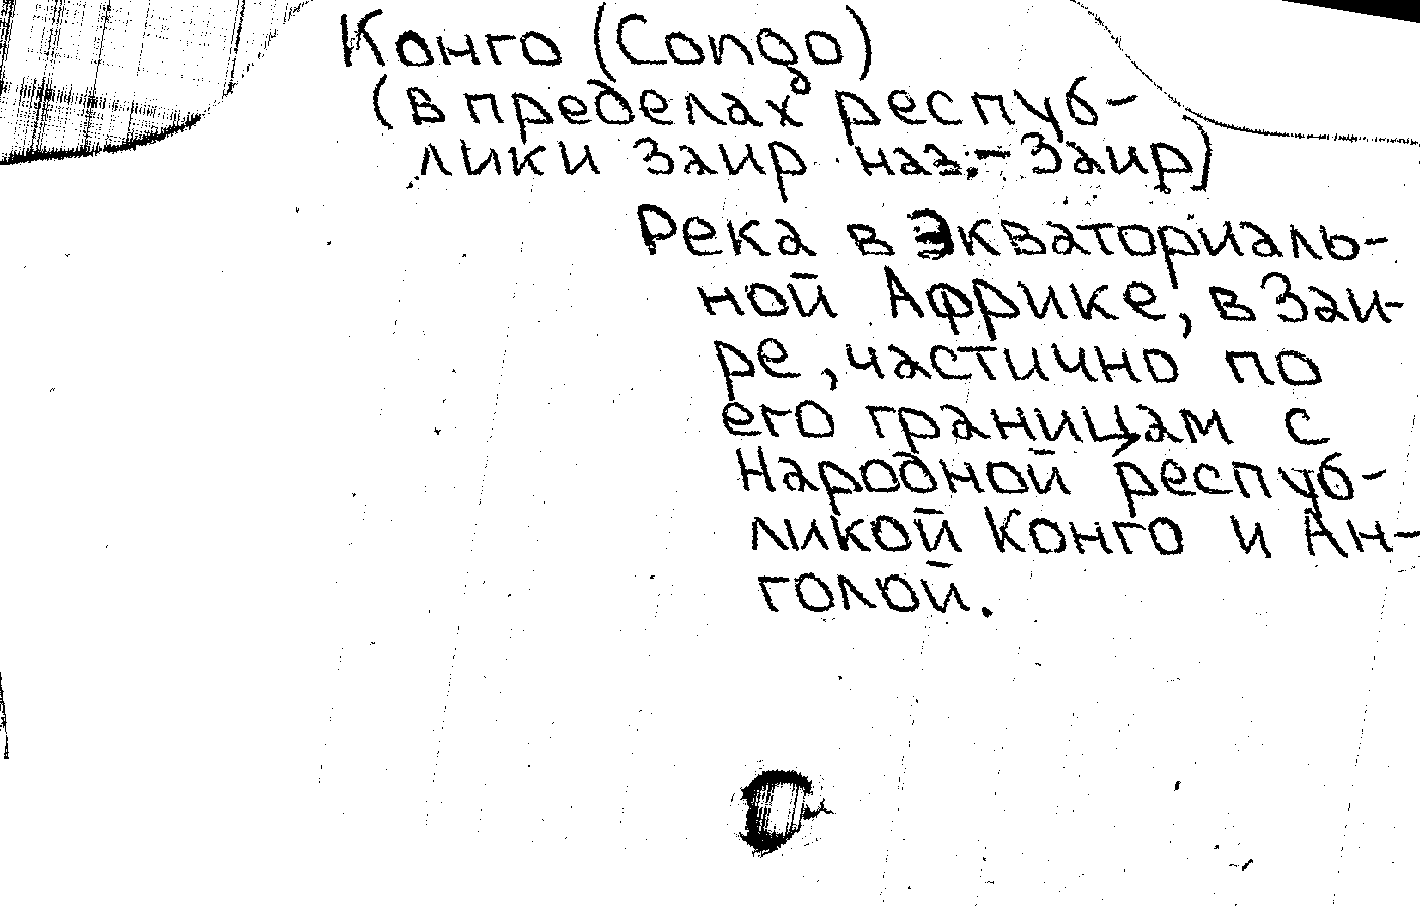 Конго (Congo)
(в пределах респуб-
лики Заир наз.- Заир)
Река в Экваториаль-
ной Африке, в Заи-
ре, частично по
его границам с
Народной респуб-
ликой Конго и Ан-
голой.